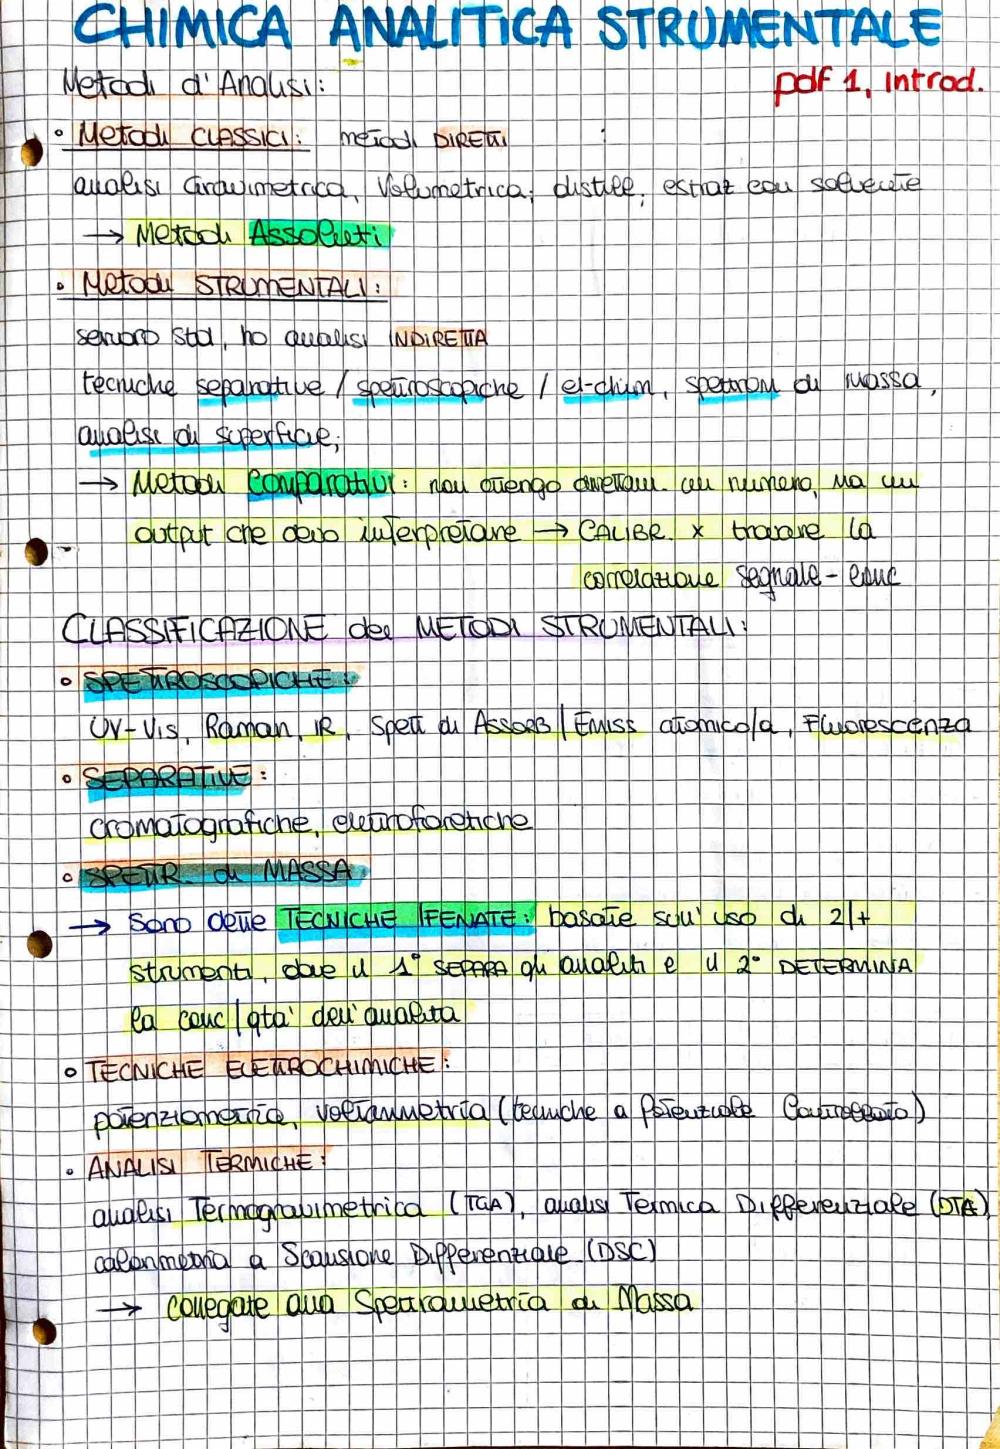 CHIMICA ANALITICA STRUMENTALE
Metodi d'Analisi:
pdf 1, introd.
• Metodi CLASSICI: metodi DIRETTI
analisi Gravimetrica, Volumetrica, distill, estraz con solvente
→ Metodi Assoluti
• Metodi STRUMENTALI:
servono std, ho analisi INDIRETTA
tecniche separative / spettroscopiche / el-chim, spettrom di massa,
analisi di superficie;
→ Metodi Comparativi: non ottengo direttam. un numero, ma un
output che devo interpretare → CALIBR. x trovare la
correlazione segnale - conc
CLASSIFICAZIONE dei METODI STRUMENTALI:
• SPETTROSCOPICHE:
UV-Vis, Raman, IR, Spett di ASSORB | EMISS atomico/a, Fluorescenza
• SEPARATIVE:
cromatografiche, elettroforetiche
• SPETTR. di MASSA
→ Sono dette TECNICHE IFENATE: basate sull'uso di 2/+
strumenti, dove il 1° SEPARA gli analiti e il 2° DETERMINA
la conc | qta' dell'analita
• TECNICHE ELETTROCHIMICHE:
potenziometria, voltammetria (tecniche a Potenziale Controllato)
• ANALISI TERMICHE:
analisi Termogravimetrica (TGA), analisi Termica Differenziale (DTA)
calorimetria a Scansione Differenziale (DSC)
→ collegate alla Spettrometria di Massa